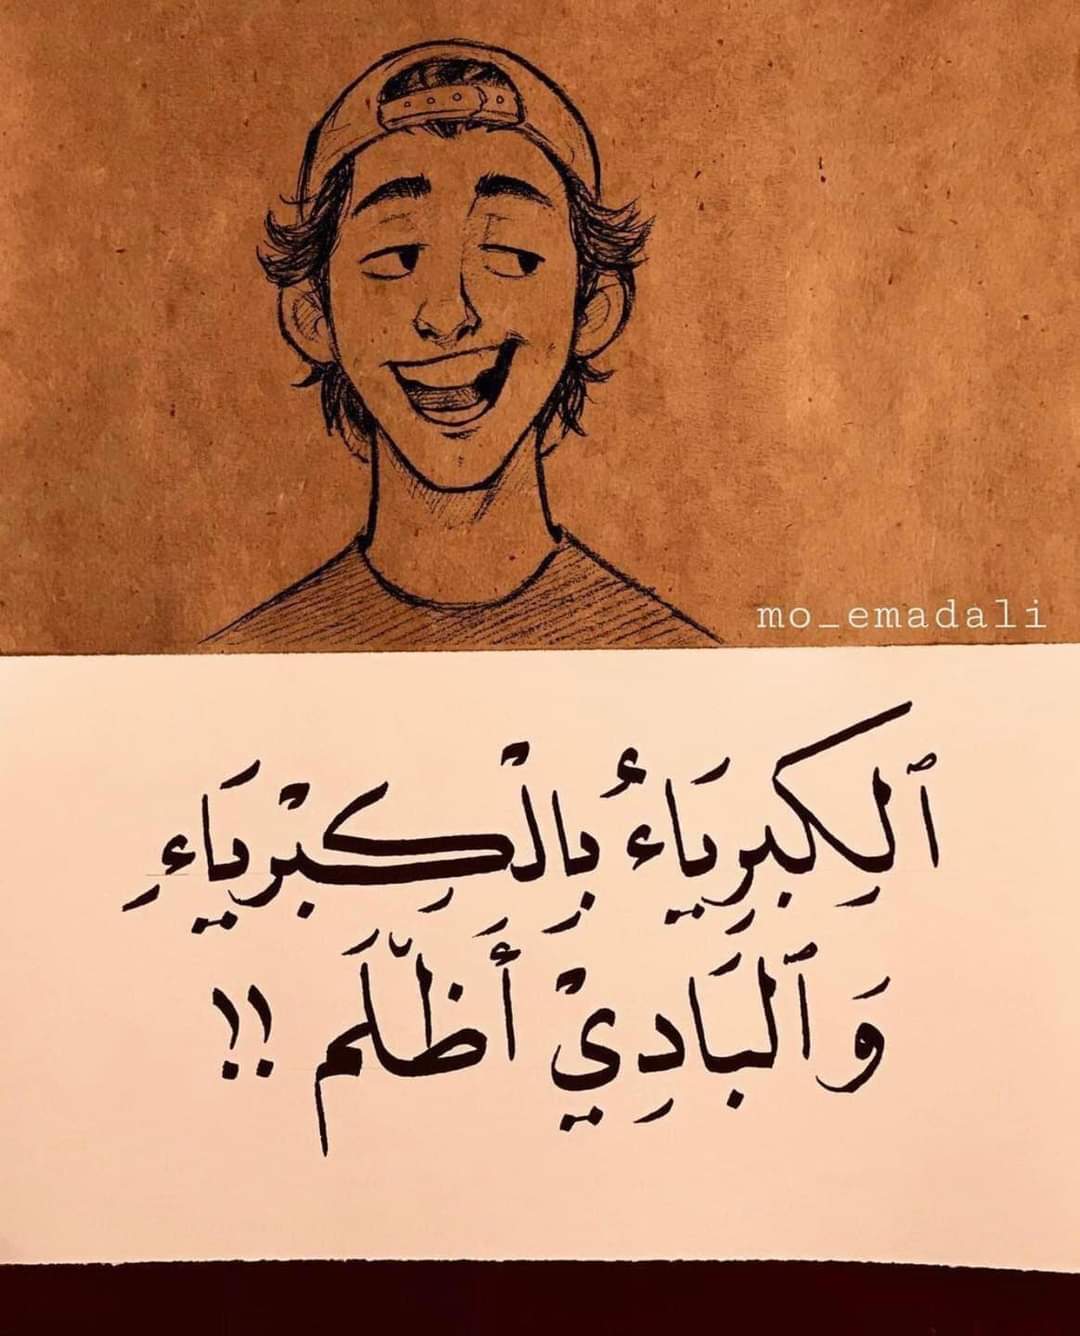 mo_emadali
ٱلكِبرِيَاءُ بِالْكِبْرِيَاءِ
وَٱلبَادِيْ أَظلَم !!